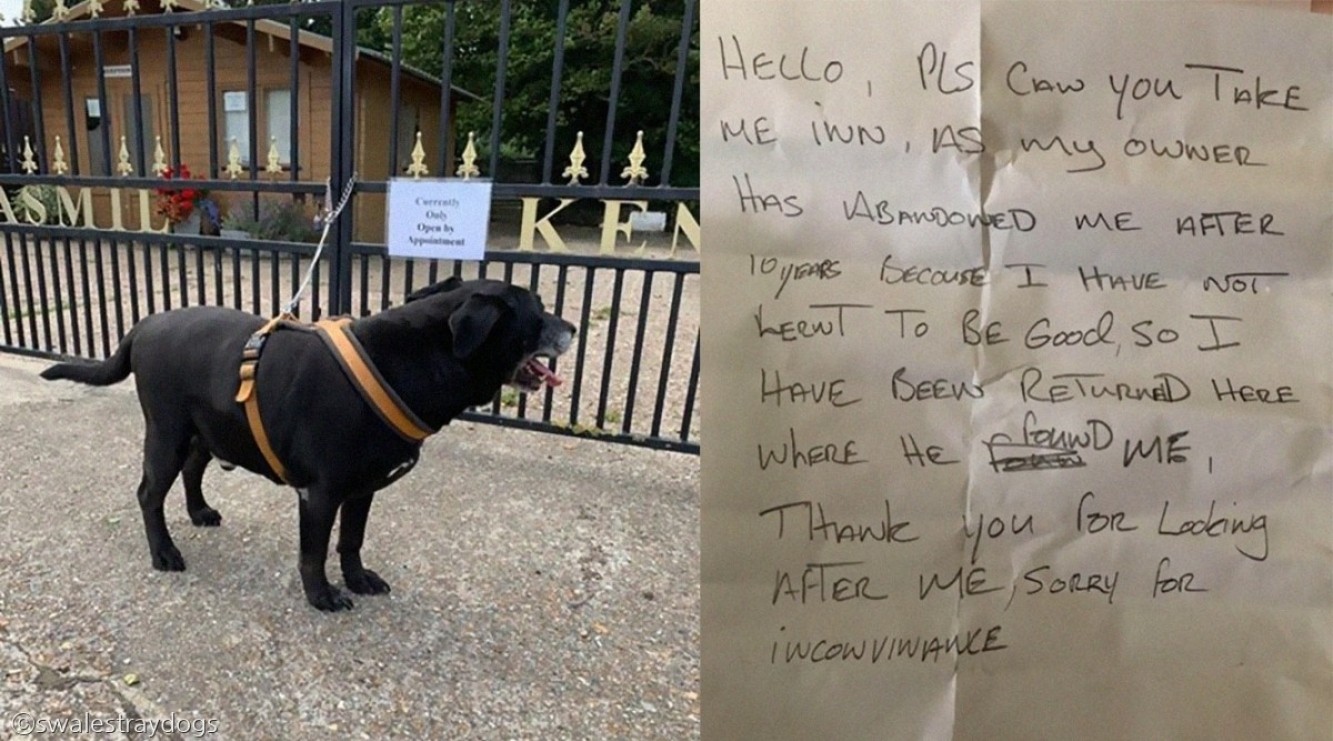 ASMIL
KEN
Currently
Only
Open by
Appointment
HELLO, PLS CAN YOU TAKE
ME INN, AS MY OWNER
HAS ABANDONED ME AFTER
10 YEARS BECOUSE I HAVE NOT
LERNT TO BE GOOD, SO I
HAVE BEEN RETURNED HERE
WHERE HE FOUND ME,
THANK YOU FOR LOOKING
AFTER ME, SORRY FOR
INCONVINANCE
©swalestraydogs